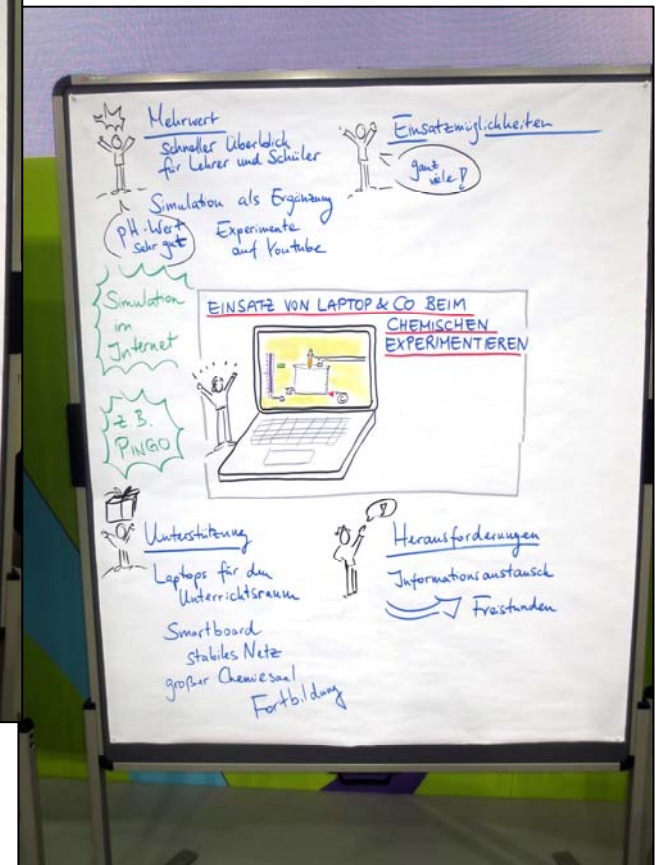 Mehrwert
schneller Überblick
für Lehrer und Schüler
Simulation als Ergänzung
pH-Wert
sehr gut
Experimente
auf Youtube
Einsatzmöglichkeiten
ganz
viele!
Simulation
im
Internet
z.B.
PINGO
EINSATZ VON LAPTOP & CO BEIM
CHEMISCHEN
EXPERIMENTIEREN
Unterstützung
Laptops für den
Unterrichtsraum
Smartboard
stabiles Netz
großer Chemiesaal
Fortbildung
!
Herausforderungen
Informationsaustausch
Freistunden